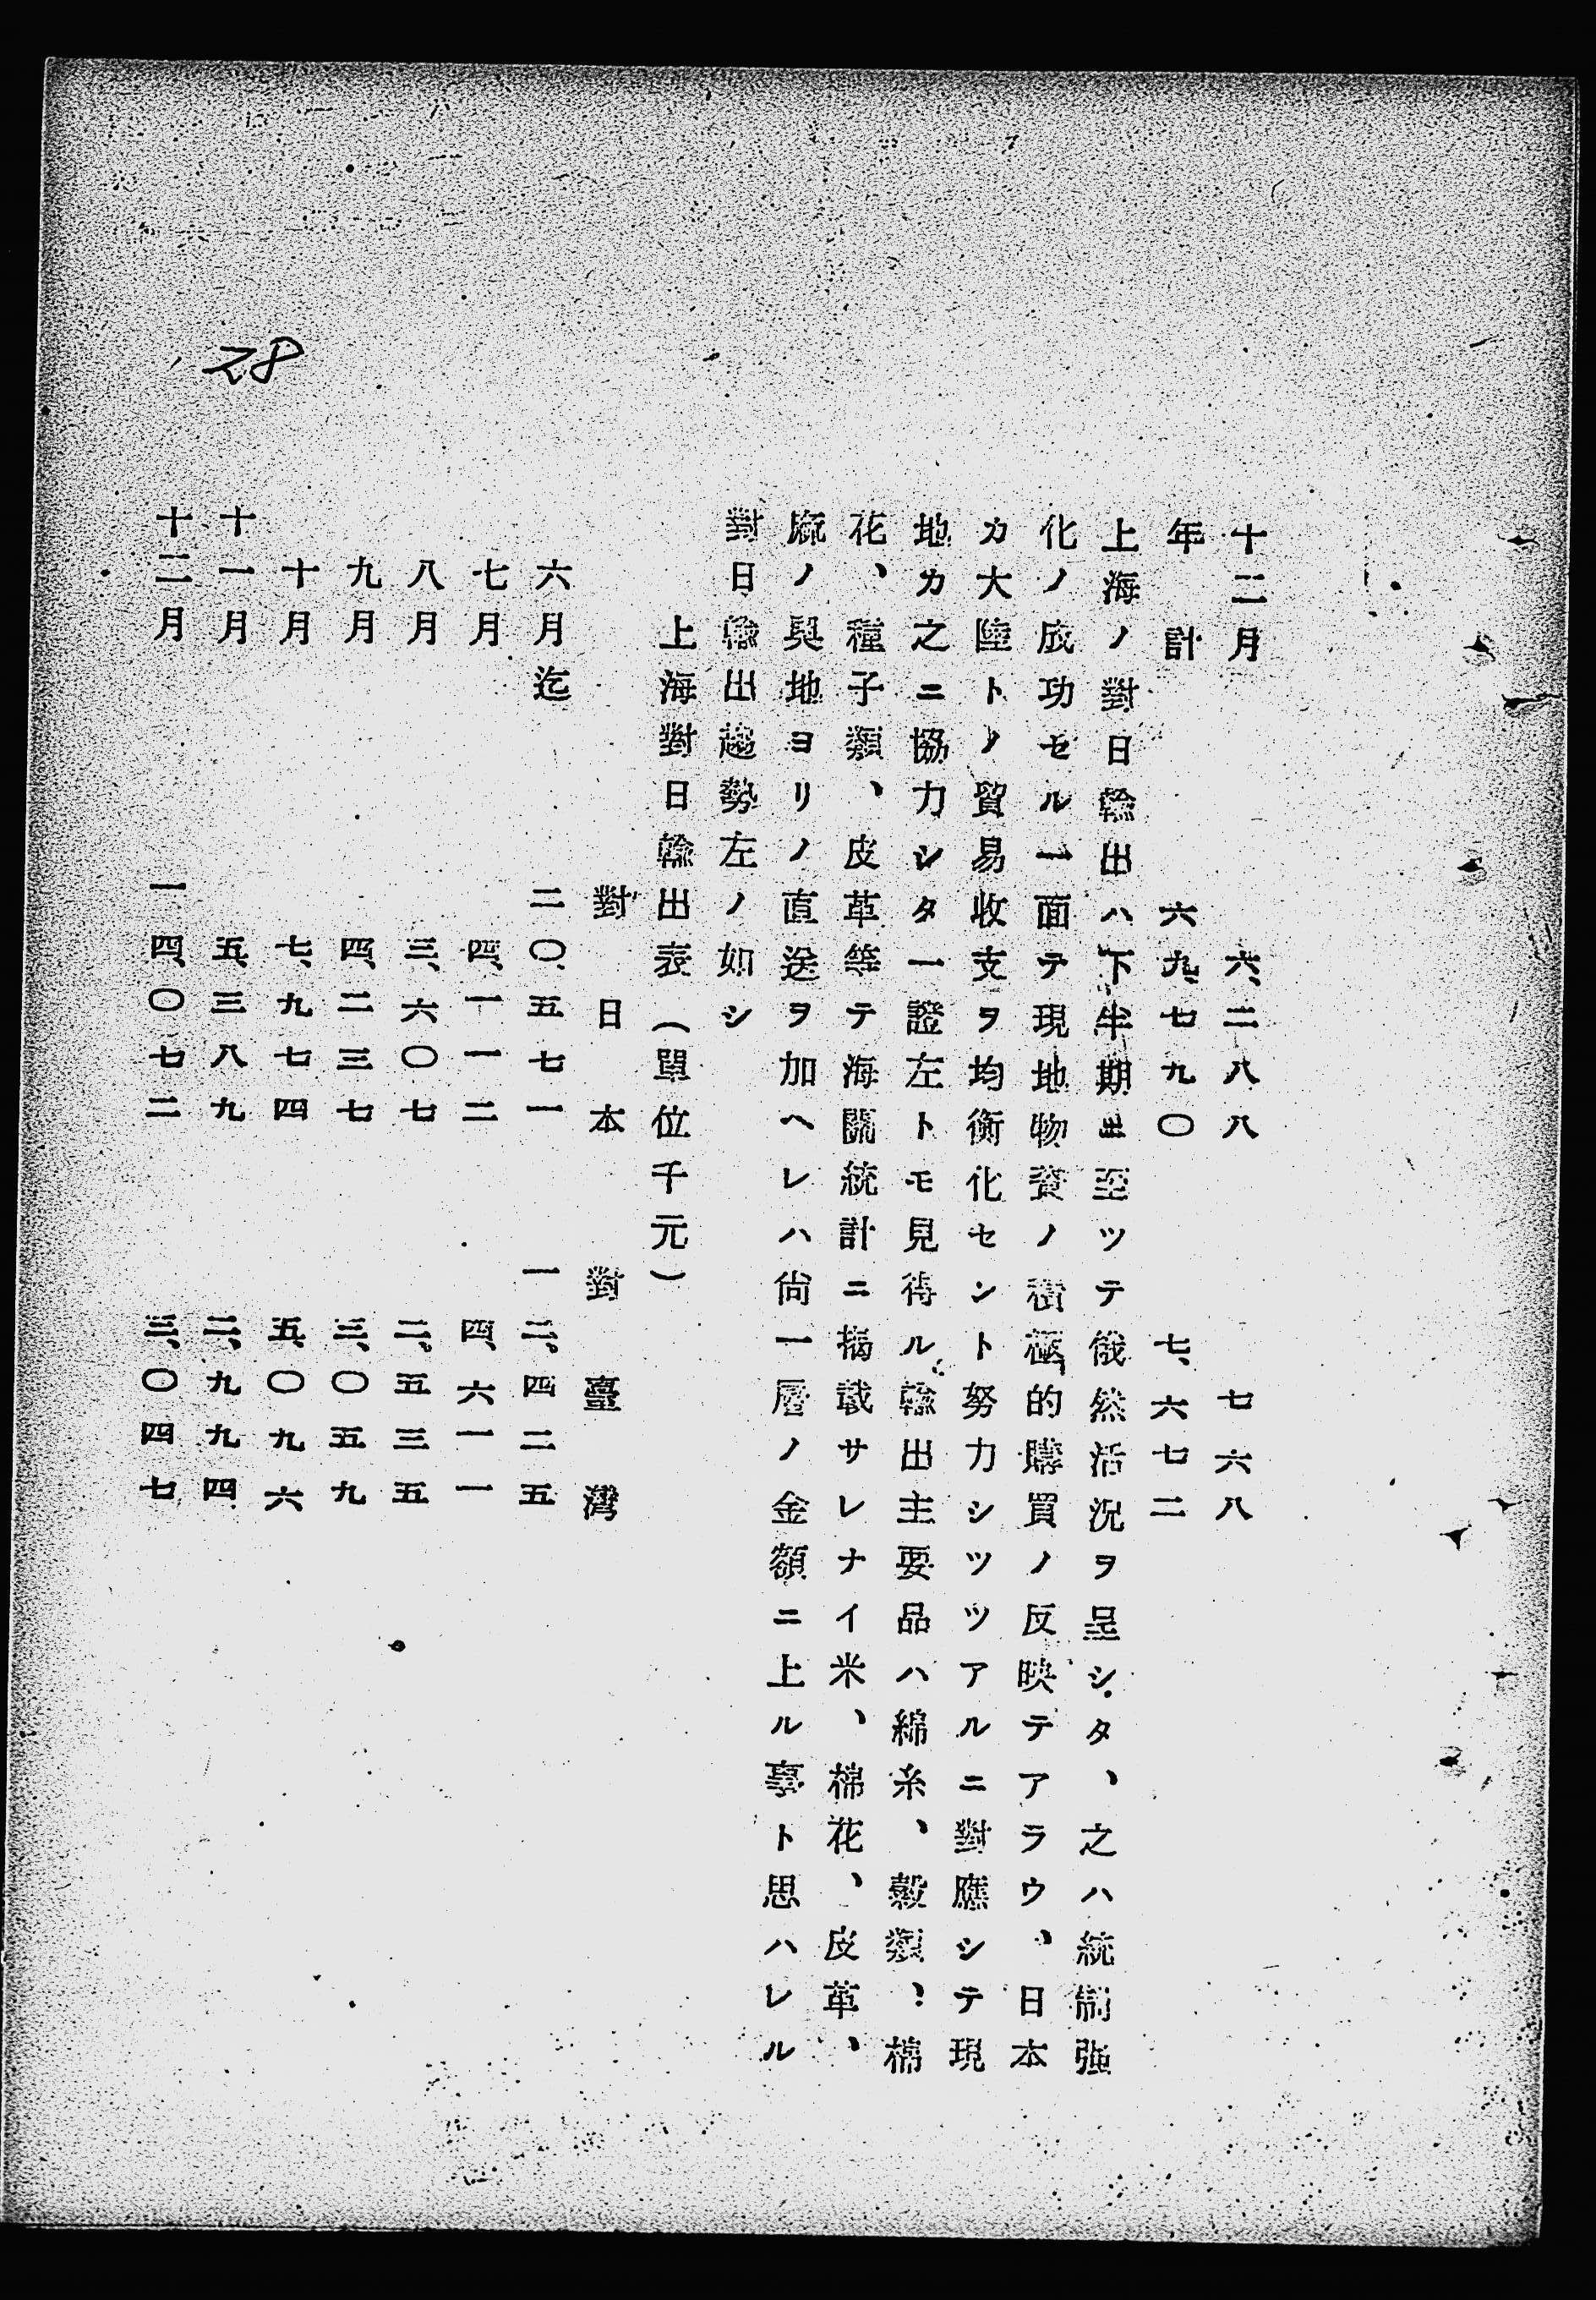 十二月　六、二八八　七六八
年計　六九、七九〇　七、六七二
上海ノ對日輸出ハ下半期ニ至ツテ俄然活況ヲ呈シタ、之ハ統制強
化ノ成功セル一面テ現地物資ノ積極的購買ノ反映テアラウ、日本
カ大陸トノ貿易收支ヲ均衡化セント努力シツツアルニ對應シテ現
地カ之ニ協力シタ一證左トモ見得ル輸出主要品ハ綿糸、穀類、棉
花、種子類、皮革等テ海關統計ニ掲載サレナイ米、棉花、皮革、
麻ノ奥地ヨリノ直送ヲ加ヘレハ尚一層ノ金額ニ上ル事ト思ハレル
對日輸出趨勢左ノ如シ
上海對日輸出表（單位千元）
對日本　對臺灣
六月迄　二〇、五七一　一二、四二五
七月　四、一一二　四、六一一
八月　三、六〇七　二、五三五
九月　四、二三七　三、〇五九
十月　七、九七四　五、〇九六
十一月　五、三八九　二、九九四
十二月　一四、〇七二　三、〇四七
28